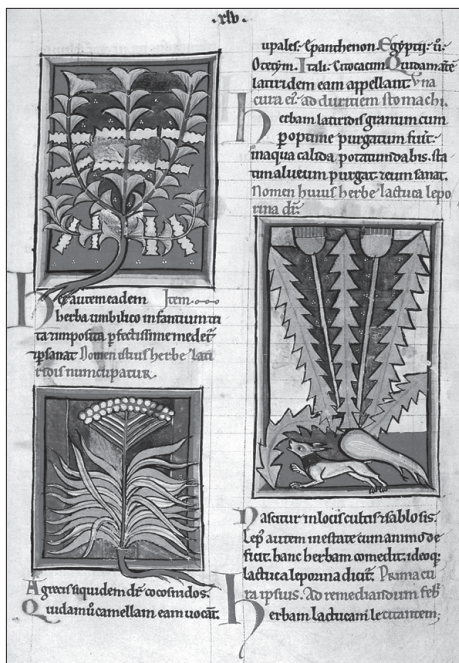 ·xlv·
autem eadem Item
herba umbilico infantium tri
sanat Nomen istius herbe lati
ridis nuncupatur.
A grecis siquidem dr cocosindos.
Quidam camellam eam uocant.
upales. Epanchenon. Egyptij. u.
Quidam
latiridem eam appellant. Vna
cura ei. ad duritiem stomachi.
herbam latiridis granum cum
optime purgatum fuit.
in aqua calida potatum dabis. sta
tum alueum purgat. reum sanat.
Nomen huius herbe lactuca lepo
rina dr.
Nascitur in locis cultis sablosis.
Lep autem in estate cum animo de
ficit. hanc herbam comedit. ideoq
lactuca leporina dicit. Prima cu
ra ipsius. Ad remediandum feb
herbam lactucam